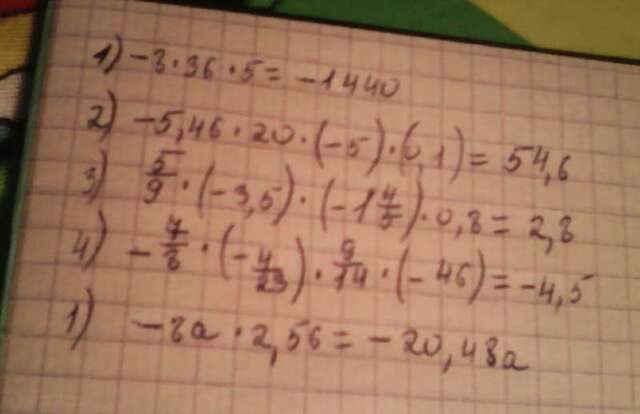 1) -8·36·5 = -1440
2) -5,46·20·(-5)·(0,1) = 54,6
3) 5/9·(-3,5)·(-1 4/5)·0,8 = 2,8
4) -7/8·(-4/23)·9/14·(-46) = -4,5
1) -8a·2,56 = -20,48a